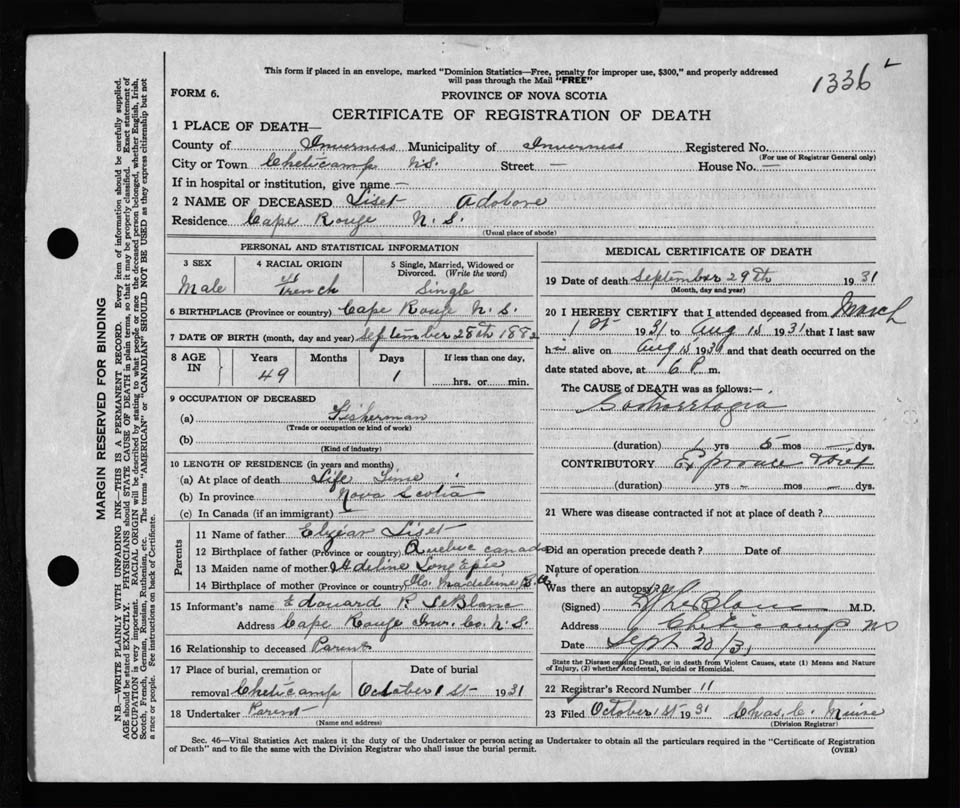 1336
This form if placed in an envelope, marked "Dominion Statistics—Free, penalty for improper use, $300," and properly addressed
will pass through the Mail "FREE"
FORM 6.
PROVINCE OF NOVA SCOTIA
CERTIFICATE OF REGISTRATION OF DEATH
1 PLACE OF DEATH—
County of Inverness Municipality of Inverness Registered No.
(For use of Registrar General only)
City or Town Cheticamp N.S. Street — House No. —
If in hospital or institution, give name —
2 NAME OF DECEASED Liset Adobore
Residence Cape Rouge N. S.
(Usual place of abode)
PERSONAL AND STATISTICAL INFORMATION
3 SEX 4 RACIAL ORIGIN 5 Single, Married, Widowed or
Divorced. (Write the word)
Male French Single
6 BIRTHPLACE (Province or country) Cape Rouge N. S.
7 DATE OF BIRTH (month, day and year) September 28th 1882
8 AGE IN Years Months Days If less than one day,
49 1 hrs. or min.
9 OCCUPATION OF DECEASED
(a) Fisherman
(Trade or occupation or kind of work)
(b)
(Kind of industry)
10 LENGTH OF RESIDENCE (in years and months)
(a) At place of death Life Time
(b) In province Nova Scotia
(c) In Canada (if an immigrant)
Parents
11 Name of father Elzéar Liset
12 Birthplace of father (Province or country) Quebec Canada
13 Maiden name of mother Adeline
14 Birthplace of mother (Province or country) Madeleine
15 Informant's name Edouard R LeBlanc
Address Cape Rouge Inv. Co. N. S.
16 Relationship to deceased Parent
17 Place of burial, cremation or Date of burial
removal Cheticamp October 1st 1931
18 Undertaker Parent
(Name and address)
MEDICAL CERTIFICATE OF DEATH
19 Date of death September 29th 1931
(Month, day and year)
20 I HEREBY CERTIFY that I attended deceased from March
1st 1931 to Aug 15 1931 that I last saw
him alive on Aug 15 1931 and that death occurred on the
date stated above, at 6 P. m.
The CAUSE of DEATH was as follows:—
(duration) 1 yrs 5 mos — dys.
CONTRIBUTORY Exposure & Diet
(duration) yrs — mos — dys.
21 Where was disease contracted if not at place of death?
Did an operation precede death? Date of
Nature of operation
Was there an autopsy?
(Signed) LeBlanc M.D.
Address Cheticamp NS
Date Sept 30/31
State the Disease causing Death, or in death from Violent Causes, state (1) Means and Nature
of Injury, (2) whether Accidental, Suicidal or Homicidal.
22 Registrar's Record Number 11
23 Filed October 1st 1931 Chas. C. Muise
(Division Registrar)
Sec. 46—Vital Statistics Act makes it the duty of the Undertaker or person acting as Undertaker to obtain all the particulars required in the "Certificate of Registration
of Death" and to file the same with the Division Registrar who shall issue the burial permit.
(OVER)
MARGIN RESERVED FOR BINDING
N.B.—WRITE PLAINLY WITH UNFADING INK—THIS IS A PERMANENT RECORD. Every item of information should be carefully supplied.
AGE should be stated EXACTLY. PHYSICIANS should STATE CAUSE OF DEATH in plain terms, so that it may be properly classified. Exact statement of
OCCUPATION is very important. RACIAL ORIGIN will be described by stating to what people or race the deceased person belonged, whether English, Irish,
Scotch, French, German, Russian, Ruthenian, etc. The terms "AMERICAN" or "CANADIAN" SHOULD NOT BE USED as they express citizenship but not
a race or people. See instructions on back of Certificate.